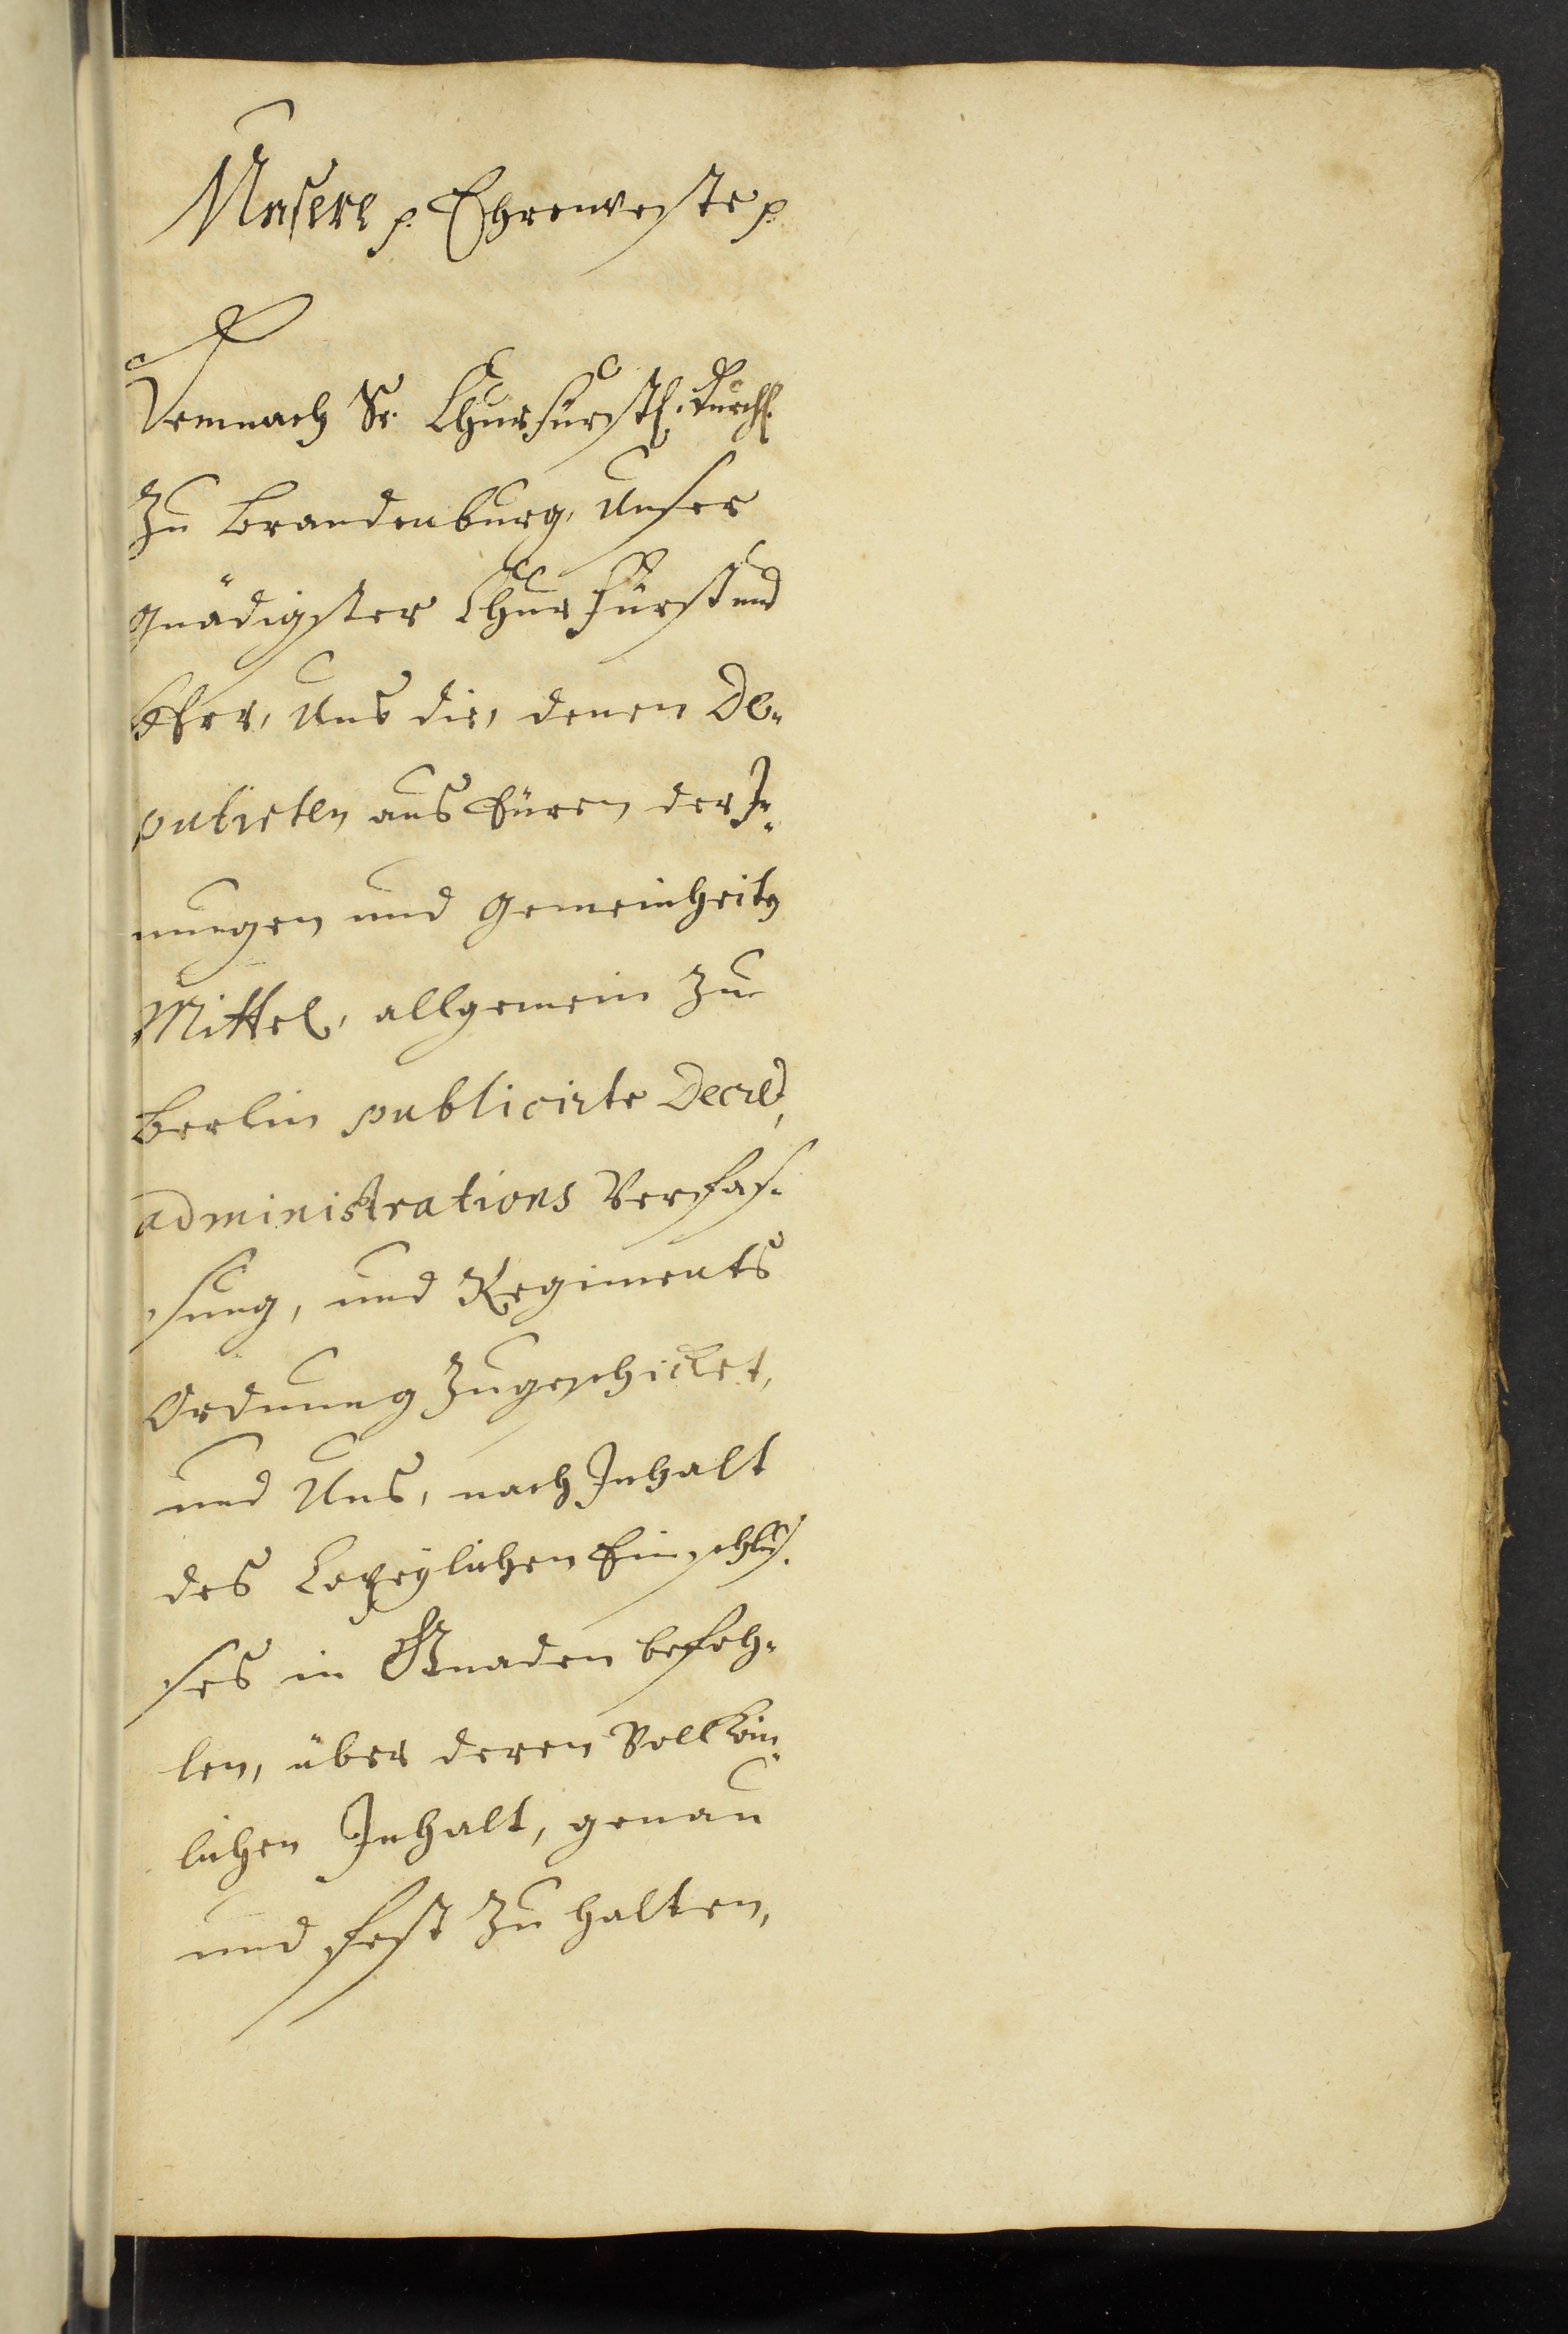 Unsere p. Ehrenveste p.
Demnach Sr. Churfürstl. Durchl.
Zu Brandenburg, Unser
gnädigster ChurFürst und
Herr, Uns die, denen De-
putirten aus Euren der In-
nungen und Gemeinheits
Mittel, allgemein zu
Berlin publicirte Decret,
administrations Verfas-
sung, und Regiments
Ordnung Zugeschicket,
und Uns, nach Inhalt
des Einschlus-
ses in Gnaden befoh-
len, über deren
lichen Inhalt, genau
und fest Zu halten,